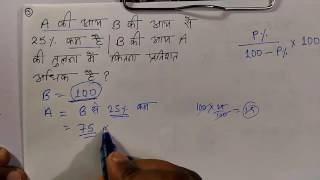 A की आय B की आय से
25% कम है / B की आय A
की तुलना में कितना प्रतिशत
अधिक है ?
P% / 100 - P% × 100
B = 100
A = B से 25% कम
= 75
100 × 25/100 = 25